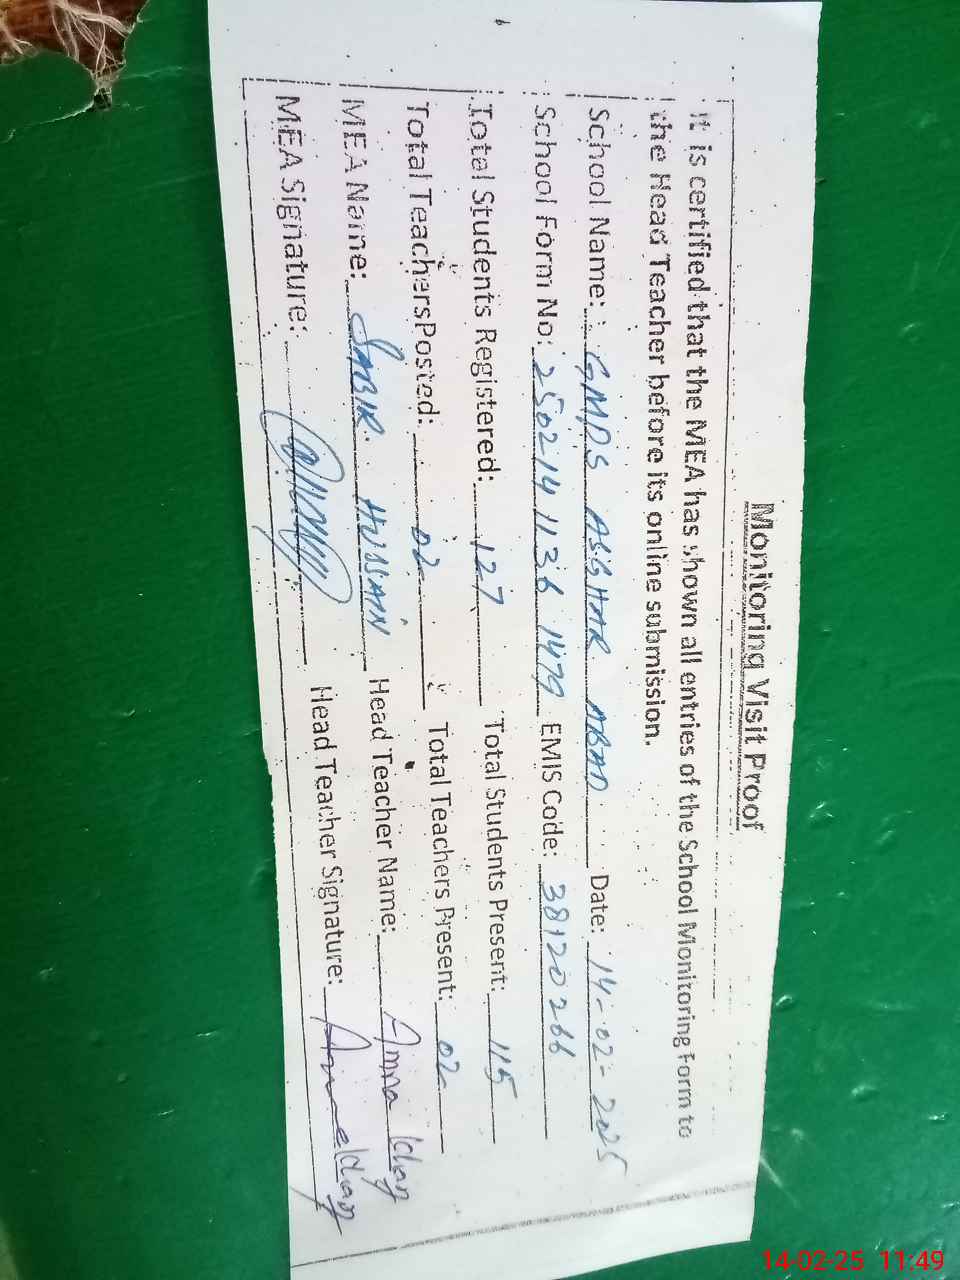 Monitoring Visit Proof
It is certified that the MEA has shown all entries of the School Monitoring Form to
the Head Teacher before its online submission.
School Name: GMPS ASGHAR ABAD Date: 14-02-2025
School Form No: 25021411361479 EMIS Code: 38120266
Total Students Registered: 127 Total Students Present: 115
Total TeachersPosted: 02 Total Teachers Present: 02
MEA Name: SABIR HUSSAIN Head Teacher Name: Amna Khan
MEA Signature: Head Teacher Signature:
14-02-25 11:49